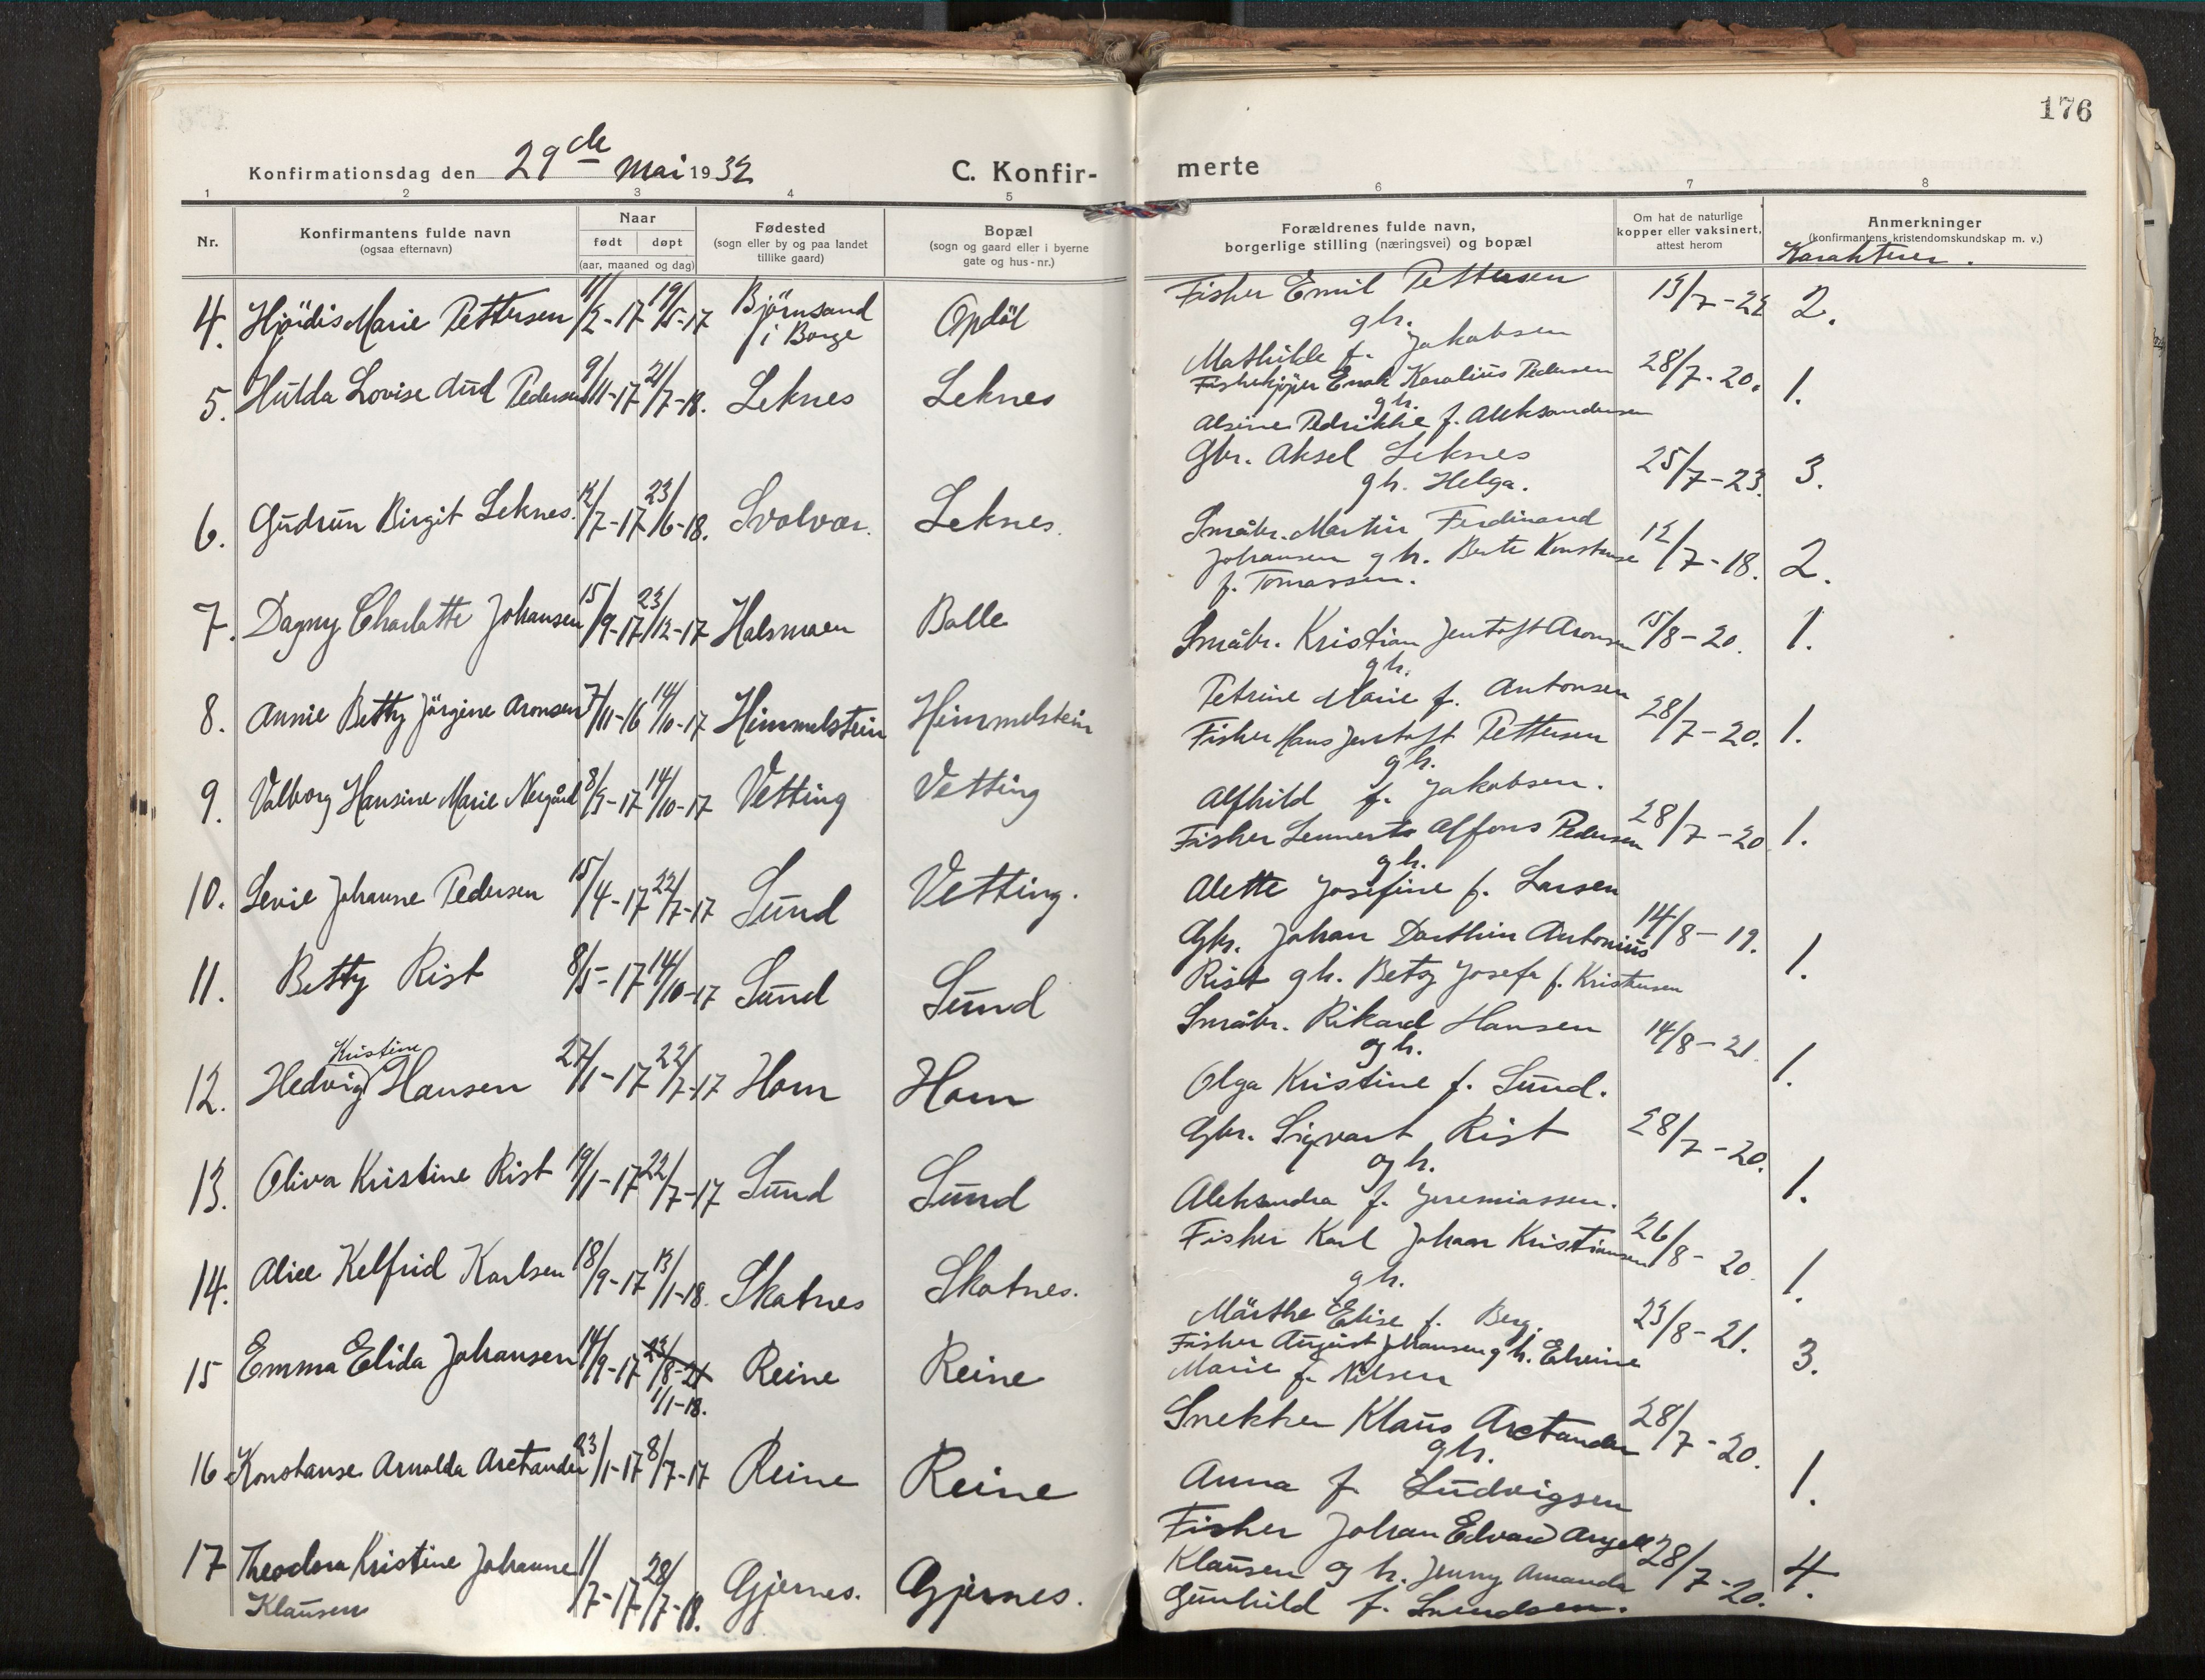 176
Konfirmationsdag den 29de Mai 1932
C. Konfir-
merte
1 2 3 4 5 6 7 8
Nr.
Konfirmantens fulde navn
(ogsaa efternavn)
Naar
født døpt
(aar, maaned og dag)
Fødested
(sogn eller by og paa landet
tillike gaard)
Bopæl
(sogn og gaard eller i byerne
gate og hus-nr.)
Forældrenes fulde navn,
borgerlige stilling (næringsvei) og bopæl
Om hat de naturlige
kopper eller vaksinert,
attest herom
Anmerkninger
(konfirmantens kristendomskundskap m. v.)
Karakterer.
4. Hjördis Marie Pettersen 11/2-17 19/5-17 Björnsand
i Borge
Opdöl
Fisker Emil Pettersen
gh.
Mathilde f. Jakobsen
19/7-22 2.
5. Hulda Lovise Aud Pedersen 9/11-17 21/7-18. Leknes Leknes
Fiskekjöper Enok Karolius Pedersen
gh.
Alsine Pedrikke f. Aleksandersen
28/7-20. 1.
6. Gudrun Birgit Leknes. 12/7-17 23/6-18. Svolvær. Leknes.
Gbr. Aksel Leknes
gh. Helga.
25/7-23. 3.
7. Dagny Charlotte Johansen 15/9-17 23/12-17 Halsmoen Bolle
Småbr. Martin Ferdinand
Johansen gh. Berte Konstanse
f. Tomassen.
12/7-18. 2.
8. Annie Betty Jörgine Aronsen 7/11-16 14/10-17 Himmelstein Himmelstein
Småbr. Kristian Jentoft Aronsen
gh.
Petrine Marie f. Antonsen
15/8-20. 1.
9. Valborg Hansine Marie Nergård 8/5-17 14/10-17 Vetting Vetting
Fisker Hans Jentoft Pettersen
gh.
Alfhild f. Jakobsen.
28/7-20. 1.
10. Levie Johanne Pedersen 15/4-17 22/7-17 Sund Vetting.
Fisker Lennerts Alfons Pedersen
gh.
Alette Josefine f. Larsen
28/7-20 1.
11. Betty Rist 8/5-17 14/10-17 Sund Sund
Gbr. Johan Dorthin Antonius
Rist gh. Betzy Josefa f. Kristensen
14/8-19. 1.
Kristine
12. Hedvig Hansen 27/1-17 22/7-17 Horn Horn
Småbr. Rikard Hansen
og h.
Olga Kristine f. Sund.
14/8-21. 1.
13. Oliva Kristine Rist 19/1-17 22/7-17 Sund Sund
Gbr. Sigvart Rist
og h.
Aleksandra f. Jeremiassen.
28/7-20. 1.
14. Alice Kelfrid Karlsen 18/9-17 13/1-18. Skotnes Skotnes.
Fisker Karl Johan Kristiansen
gh.
Märthe Elise f. Berg.
26/8-20. 1.
15 Emma Elida Johansen 14/9-17 23/8-21 Reine Reine
1/1-18.
Fisker August Johansen gh. Elverine
Marie f. Nilsen
23/8-21. 3.
16. Konstanse Arnolda Arctander 23/1-17 8/7-17 Reine Reine
Snekker Klaus Arctander
gh.
Anna f. Ludvigsen
28/7-20. 1.
17 Theodora Kristine Johanne
Klausen
11/7-17 28/7-18. Gjernes. Gjernes.
Fisker Johan Edvard Angell
Klausen og h. Jenny Amanda
Gunhild f.
28/7-20. 4.